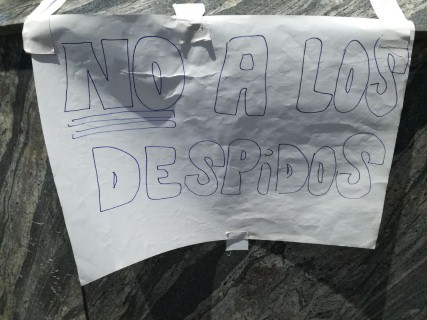 NO A LOS
DESPiDOS